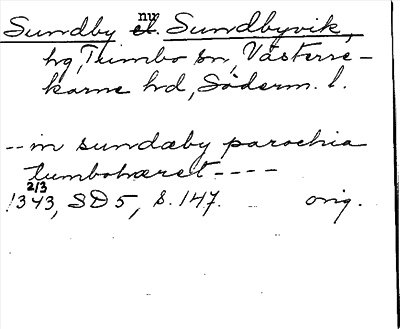 Sundby nu Sundbyvik,
hg, Tumbo sn, Västerre-
karne hd, Söderm. l.
-- in sundæby parochia
tumbohæret ----
2/3
1343, SD 5, s. 147. orig.